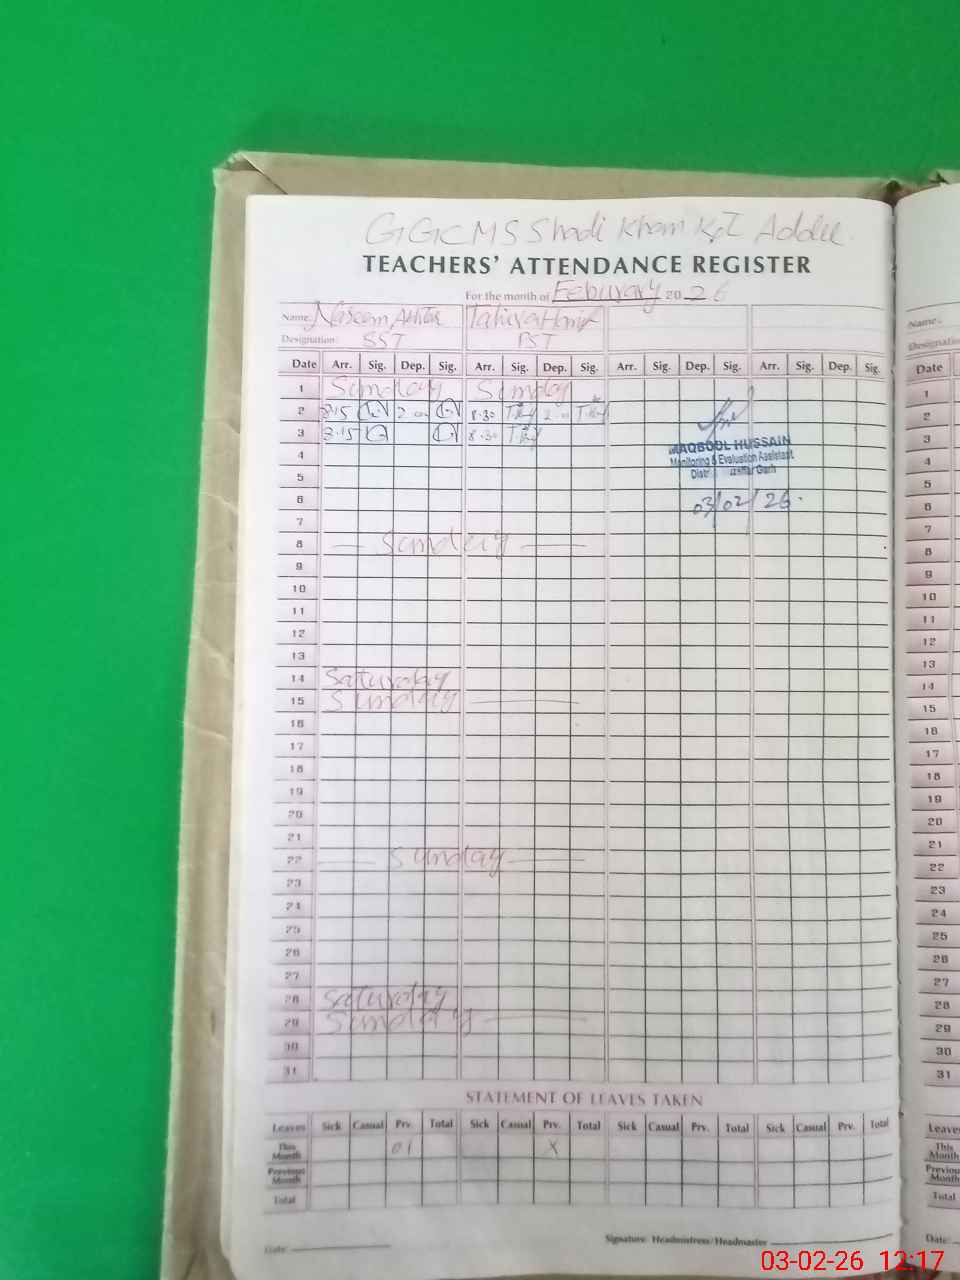 GGCMS Shadi Khan Kot Addu.
TEACHERS' ATTENDANCE REGISTER
For the month of Feburary 20 26
Name: Naseem Akhtar Tahira Hanif
Designation: SST PST
Date Arr. Sig. Dep. Sig. Arr. Sig. Dep. Sig. Arr. Sig. Dep. Sig. Arr. Sig. Dep. Sig.
1 Sunday Sunday
2 8.15 2.00 8.30 2.00
3 8.15 8.30
4
5
6
7
8 Sunday
9
10
11
12
13
14 Saturday
15 Sunday
16
17
18
19
20
21
22 Sunday
23
24
25
26
27
28 Saturday
29 Sunday
30
31
MAQBOOL HUSSAIN
Monitoring & Evaluation Assistant
03/02/26.
STATEMENT OF LEAVES TAKEN
Leaves Sick Casual Prv. Total Sick Casual Prv. Total Sick Casual Prv. Total Sick Casual Prv. Total
This Month 01 X
Previous Month
Total
Date:
Signature: Headmistress/Headmaster
Name.
Date
1
2
3
4
5
6
7
8
9
10
11
12
13
14
15
16
17
18
19
20
21
22
23
24
25
26
27
28
29
30
31
This
Month
Month
Total
Date:
03-02-26 12:17